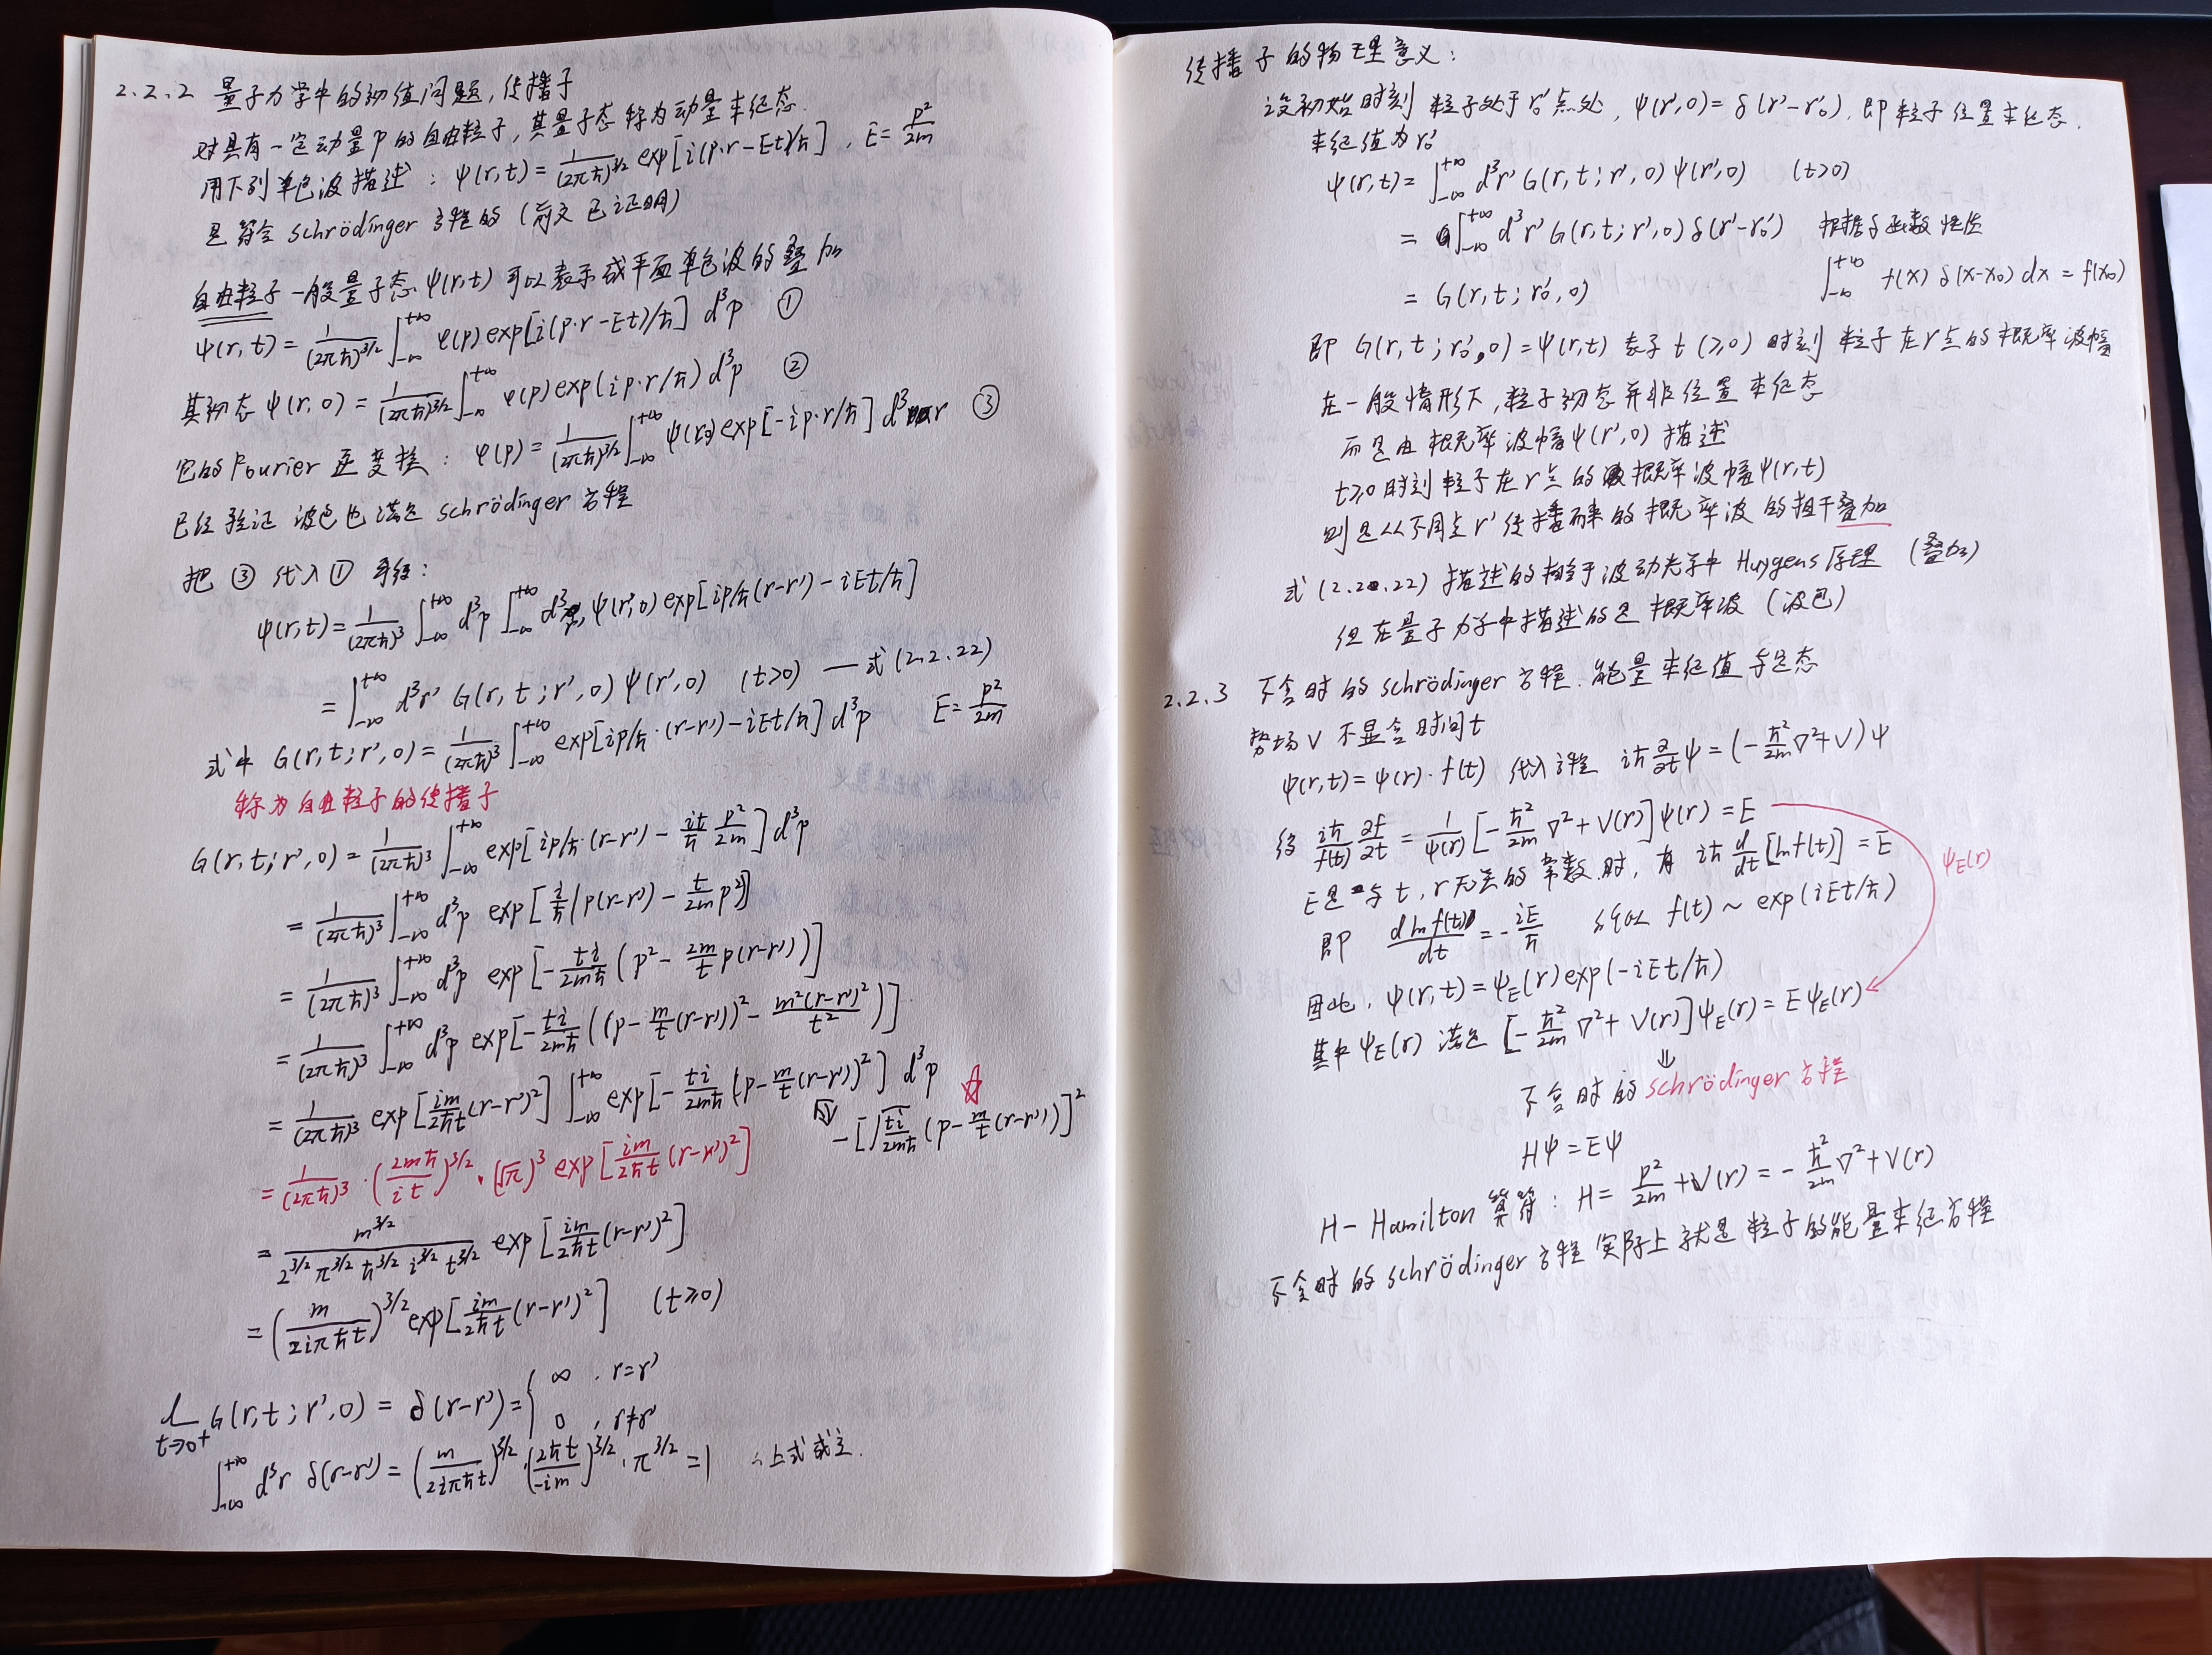 2.2.2 量子力学中的初值问题,传播子
对具有一定动量p的自由粒子,其量子态称为动量本征态.
用下列单色波描述: ψ(r,t) = 1/(2πħ)^{3/2} exp[i(p·r-Et)/ħ], E = p²/2m
是符合 schrödinger 方程的 (前文已证明)
自由粒子一般量子态 ψ(r,t) 可以表示成平面单色波的叠加
ψ(r,t) = 1/(2πħ)^{3/2} ∫_{-∞}^{+∞} φ(p) exp[i(p·r-Et)/ħ] d³p ①
其初态 ψ(r,0) = 1/(2πħ)^{3/2} ∫_{-∞}^{+∞} φ(p) exp(ip·r/ħ) d³p ②
它的 Fourier 逆变换: φ(p) = 1/(2πħ)^{3/2} ∫_{-∞}^{+∞} ψ(r,0) exp[-ip·r/ħ] d³r ③
已经验证 波包也满足 schrödinger 方程
把 ③ 代入 ① 可得:
ψ(r,t) = 1/(2πħ)³ ∫_{-∞}^{+∞} d³p ∫_{-∞}^{+∞} d³r' ψ(r',0) exp[ip/ħ(r-r')-iEt/ħ]
= ∫_{-∞}^{+∞} d³r' G(r,t;r',0) ψ(r',0) (t>0) — 式(2.2.22)
式中 G(r,t;r',0) = 1/(2πħ)³ ∫_{-∞}^{+∞} exp[ip/ħ·(r-r')-iEt/ħ] d³p E = p²/2m
称为自由粒子的传播子
G(r,t;r',0) = 1/(2πħ)³ ∫_{-∞}^{+∞} exp[ip/ħ·(r-r') - it/ħ p²/2m] d³p
= 1/(2πħ)³ ∫_{-∞}^{+∞} d³p exp[i/ħ(p(r-r') - t/2m p²)]
= 1/(2πħ)³ ∫_{-∞}^{+∞} d³p exp[-ti/2mħ (p² - 2m/t p(r-r'))]
= 1/(2πħ)³ ∫_{-∞}^{+∞} d³p exp[-ti/2mħ ((p - m/t(r-r'))² - m²(r-r')²/t²)]
= 1/(2πħ)³ exp[im/2ħt(r-r')²] ∫_{-∞}^{+∞} exp[-ti/2mħ (p - m/t(r-r'))²] d³p ☆
⇓ -[√(ti/2mħ) (p - m/t(r-r'))]²
= 1/(2πħ)³ · (2mħ/it)^{3/2} · (√π)³ exp[im/2ħt (r-r')²]
= m^{3/2}/(2^{3/2} π^{3/2} ħ^{3/2} i^{3/2} t^{3/2}) exp[im/2ħt(r-r')²]
= (m/2iπħt)^{3/2} exp[im/2ħt(r-r')²] (t≥0)
lim_{t→0+} G(r,t;r',0) = δ(r-r') = { ∞, r=r'
0, r≠r'
∫_{-∞}^{+∞} d³r δ(r-r') = (m/2iπħt)^{3/2} · (2ħt/-im)^{3/2} · π^{3/2} = 1 ∴上式成立.
传播子的物理意义:
设初始时刻 粒子处于 r₀' 点处, ψ(r',0) = δ(r'-r₀'), 即粒子位置本征态.
本征值为 r₀'
ψ(r,t) = ∫_{-∞}^{+∞} d³r' G(r,t;r',0) ψ(r',0) (t>0)
= ∫_{-∞}^{+∞} d³r' G(r,t;r',0) δ(r'-r₀') 根据δ函数性质
= G(r,t;r₀',0) ∫_{-∞}^{+∞} f(x) δ(x-x₀) dx = f(x₀)
即 G(r,t;r₀',0) = ψ(r,t) 表示 t(≥0) 时刻 粒子在 r 点的概率波幅
在一般情形下,粒子初态并非位置本征态
而是由概率波幅 ψ(r',0) 描述
t≥0时刻粒子在 r 点的概率波幅 ψ(r,t)
则是从不同点 r' 传播而来的概率波的相干叠加
式(2.2.22) 描述的相当于波动光学中 Huygens 原理 (叠加)
但在量子力学中描述的是概率波 (波包)
2.2.3 不含时的 schrödinger 方程.能量本征值与定态
势场V不显含时间t
ψ(r,t) = ψ(r)·f(t) 代入方程 iħ ∂/∂t ψ = (-ħ²/2m ∇²+V)ψ
得 iħ/f(t) ∂f/∂t = 1/ψ(r) [-ħ²/2m ∇² + V(r)]ψ(r) = E
ψ_E(r)
E是与 t, r 无关的常数时, 有 iħ d/dt [ln f(t)] = E
即 d ln f(t)/dt = -iE/ħ 所以 f(t) ~ exp(iEt/ħ)
因此, ψ(r,t) = ψ_E(r) exp(-iEt/ħ)
其中 ψ_E(r) 满足 [-ħ²/2m ∇² + V(r)]ψ_E(r) = Eψ_E(r)
⇓
不含时的 schrödinger 方程
Hψ = Eψ
H - Hamilton 算符: H = p²/2m + V(r) = -ħ²/2m ∇² + V(r)
不含时的 schrödinger 方程 实际上就是粒子的能量本征方程